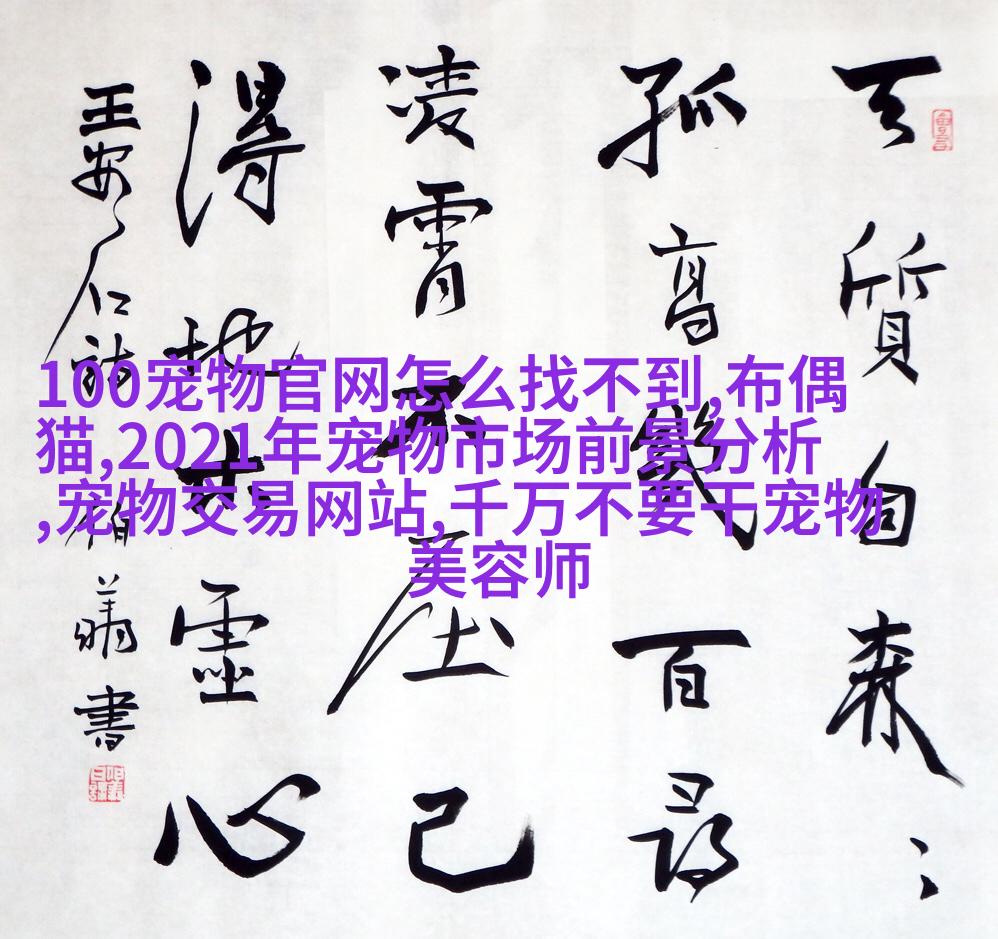 天質自森々
孤高幾百尋
凌霄不屈己
得地本心
王安石詩柏書
100宠物官网怎么找不到,布偶
猫,2021年宠物市场前景分析
,宠物交易网站,千万不要干宠物
美容师